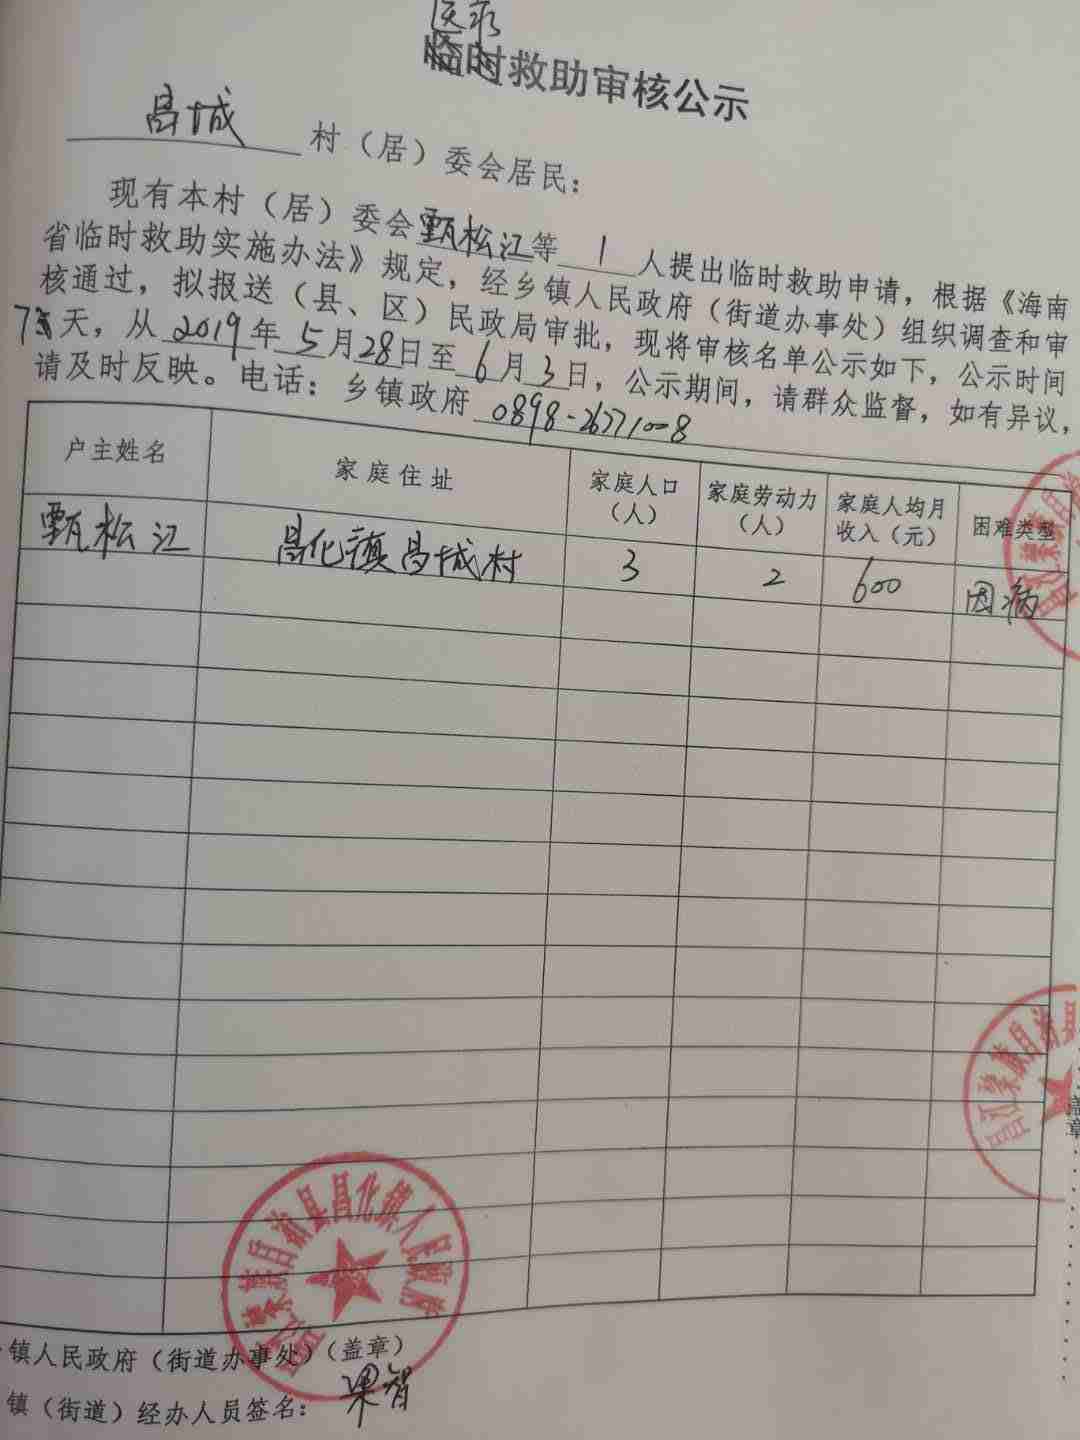 医疗
临时救助审核公示
昌城 村（居）委会居民：
现有本村（居）委会甄松江等 1 人提出临时救助申请，根据《海南
省临时救助实施办法》规定，经乡镇人民政府（街道办事处）组织调查和审
核通过，拟报送（县、区）民政局审批，现将审核名单公示如下，公示时间
7天，从 2019 年 5 月 28 日至 6 月 3 日，公示期间，请群众监督，如有异议，
请及时反映。电话：乡镇政府 0898-26771008
户主姓名 家庭住址 家庭人口（人） 家庭劳动力（人） 家庭人均月收入（元） 困难类型
甄松江 昌化镇昌城村 3 2 600 因病
昌江黎族自治县昌化镇人民政府
昌江黎族自
昌江黎族自治县
盖章
镇人民政府（街道办事处）（盖章）
镇（街道）经办人员签名：